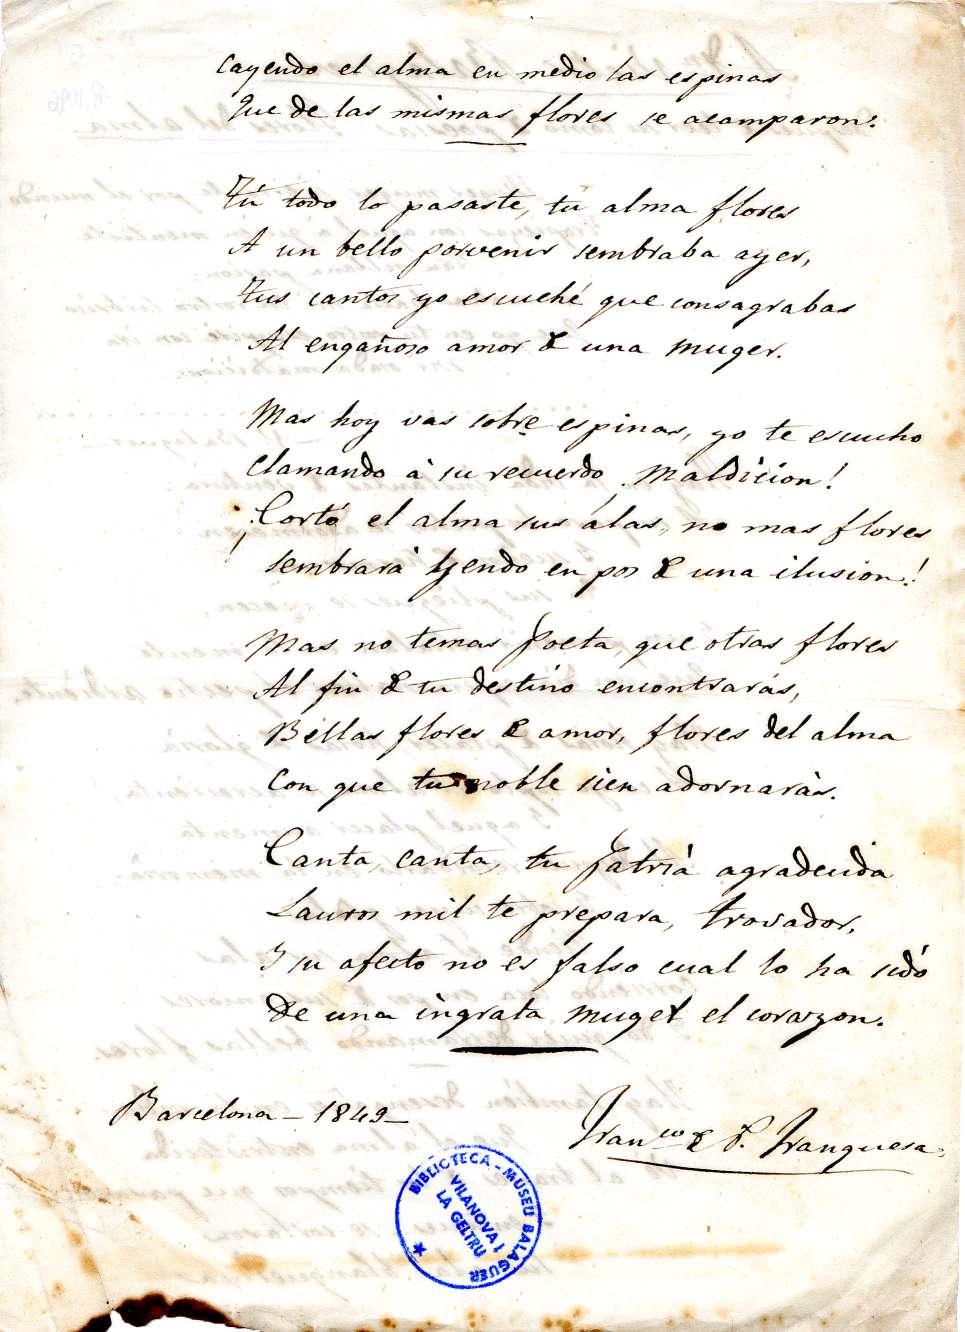 Cayendo el alma en medio las espinas
Que de las mismas flores se acamparon.
Tú todo lo pasaste, tu alma flores
A un bello porvenir sembraba ayer,
Tus cantos yo escuché que consagrabas
Al engañoso amor de una muger.
Mas hoy vas sobre espinas, yo te escucho
Clamando á su recuerdo Maldicion!
¡Cortó el alma sus álas, no mas flores
sembrará yendo en pos de una ilusion!
Mas no temas Poeta, que otras flores
Al fin de tu destino encontrarás,
Bellas flores de amor, flores del alma
Con que tu noble sien adornarás.
Canta, canta, tu Patria agradecida
Lauros mil te prepara, trovador,
Y su afecto no es falso cual lo ha sidó
De una ingrata muger el corazon.
Barcelona - 1849 -
Franco de P. Franquesa
BIBLIOTECA - MUSEU BALAGUER
VILANOVA I
LA GELTRU